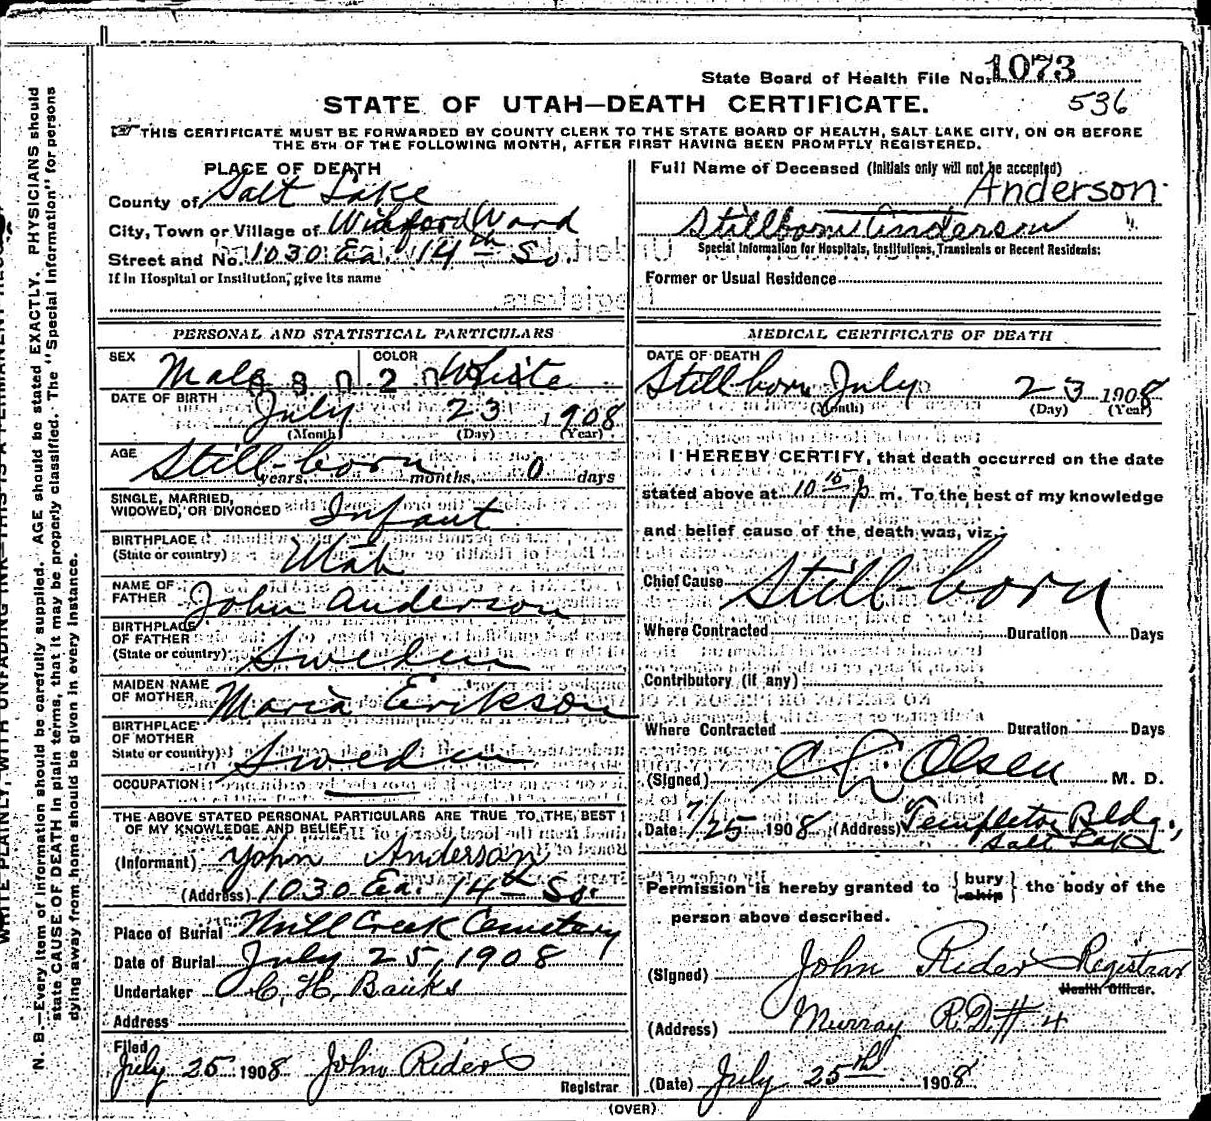 State Board of Health File No. 1073
STATE OF UTAH—DEATH CERTIFICATE.
536
THIS CERTIFICATE MUST BE FORWARDED BY COUNTY CLERK TO THE STATE BOARD OF HEALTH, SALT LAKE CITY, ON OR BEFORE
THE 5TH OF THE FOLLOWING MONTH, AFTER FIRST HAVING BEEN PROMPTLY REGISTERED.
PLACE OF DEATH
County of Salt Lake
City, Town or Village of Ward
Street and No. 1030 Ea. 14th So.
If in Hospital or Institution, give its name
Full Name of Deceased (Initials only will not be accepted)
Anderson
Stillborn Anderson
Special Information for Hospitals, Institutions, Transients or Recent Residents:
Former or Usual Residence
PERSONAL AND STATISTICAL PARTICULARS
SEX Male COLOR White
DATE OF BIRTH July 23 1908
(Month) (Day) (Year)
AGE Still-born years months 0 days
SINGLE, MARRIED,
WIDOWED, OR DIVORCED Infant
BIRTHPLACE
(State or country) Utah
NAME OF
FATHER John Anderson
BIRTHPLACE
OF FATHER
(State or country) Sweden
MAIDEN NAME
OF MOTHER Maria Erikson
BIRTHPLACE
OF MOTHER
State or country) Sweden
OCCUPATION
THE ABOVE STATED PERSONAL PARTICULARS ARE TRUE TO THE BEST
OF MY KNOWLEDGE AND BELIEF
(Informant) John Anderson
(Address) 1030 Ea. 14th So.
Place of Burial Mill Creek Cemetery
Date of Burial July 25, 1908
Undertaker C. H. Banks
Address
Filed
July 25 1908 John Rider
Registrar
MEDICAL CERTIFICATE OF DEATH
DATE OF DEATH
Stillborn July 23 1908
(Month) (Day) (Year)
I HEREBY CERTIFY, that death occurred on the date
stated above at 10 15 p. m. To the best of my knowledge
and belief cause of the death was, viz.:
Chief Cause Still-born
Where Contracted Duration Days
Contributory (if any)
Where Contracted Duration Days
(Signed) Olsen M. D.
Date 7/25 1908 (Address) Templeton Bldg.,
Salt Lake
Permission is hereby granted to {bury
ship} the body of the
person above described.
(Signed) John Rider Registrar
Health Officer.
(Address) Murray R.D.# 4
(Date) July 25th 1908
(OVER)
N. B.—Every item of information should be carefully supplied. AGE should be stated EXACTLY. PHYSICIANS should
state CAUSE OF DEATH in plain terms, that it may be properly classified. The "Special Information" for persons
dying away from home should be given in every instance.
WRITE PLAINLY, WITH UNFADING INK—THIS IS A PERMANENT